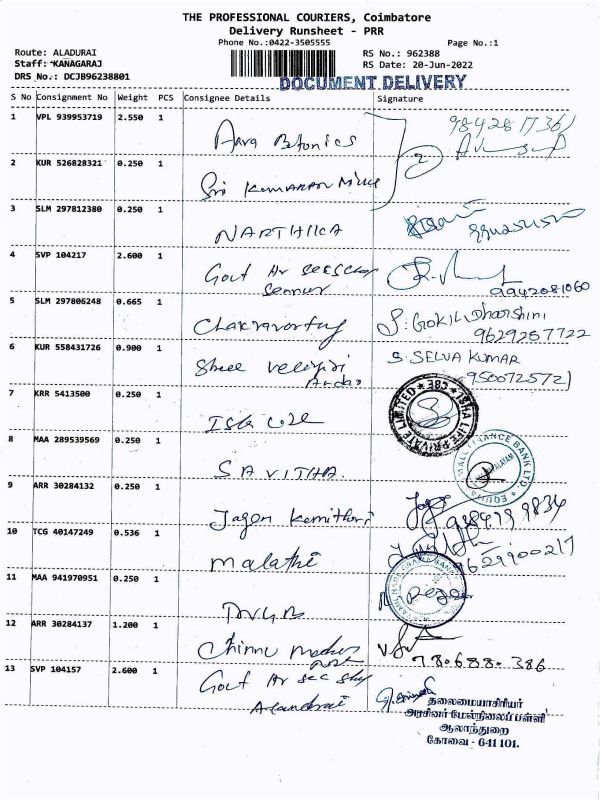 THE PROFESSIONAL COURIERS, Coimbatore
Delivery Runsheet - PRR
Phone No.:0422-3505555
Page No.:1
Route: ALADURAI
RS No.: 962388
Staff: KANAGARAJ
RS Date: 20-Jun-2022
DRS No.: DCJB96238801
DOCUMENT DELIVERY
S No Consignment No Weight PCS Consignee Details Signature
1 VPL 939953719 2.550 1
Aara Botonics
2
2 KUR 526828321 0.250 1
Sri Kumaran Mills
3 SLM 297812380 0.250 1
NARTHIKA
4 SVP 104217 2.600 1
Govt Hr sec School
9942081060
5 SLM 297806248 0.665 1
Chakravorthy
S. GOKIL Dharshini
9629257722
6 KUR 558431726 0.900 1
Shree velgiri
S. SELVA KUMAR
9500725721
7 KRR 5413500 0.250 1
ISHA LIFE PRIVATE LIMITED * CBE *
8 MAA 289539569 0.250 1
SAVITHA.
EQUITAS SMALL FINANCE BANK LTD.
9 ARR 30284132 0.250 1
Jagan
10 TCG 40147249 0.536 1
malathi
9629900217
11 MAA 941970951 0.250 1
TNGB
12 ARR 30284137 1.200 1
Chinnu
78.688.386
13 SVP 104157 2.600 1
Govt Hr sec
தலைமையாசிரியர்
அரசினர் மேல்நிலைப்பள்ளி
ஆலாந்துறை
கோவை - 641 101.